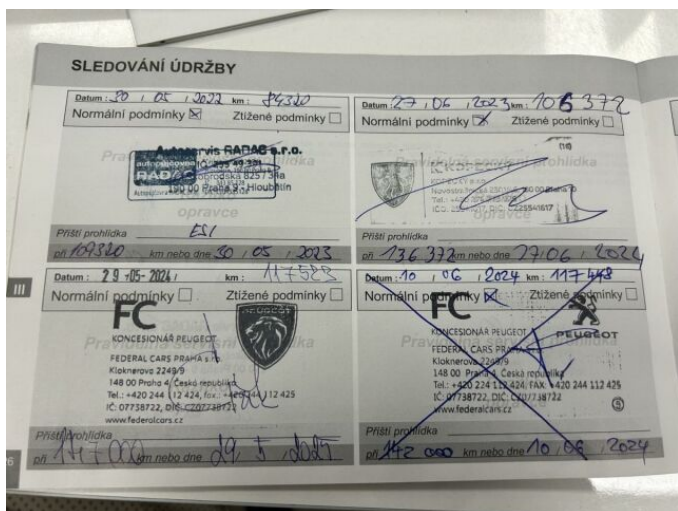 SLEDOVÁNÍ ÚDRŽBY
Datum : 30 , 05 , 2022 km : 84320
Normální podmínky Ztížené podmínky
Autoservis RADAG s.r.o.
RADAG
190 00 Praha 9 - Hloubětín
opravce
Příští prohlídka ESI
při 109320 km nebo dne 30 , 05 , 2023
Datum : 27 , 06 , 2023 km : 106 372
Normální podmínky Ztížené podmínky
prohlídka
opravce
Příští prohlídka
při 136 372 km nebo dne 27 , 06 , 2024
III
Datum : 29 -05- 2024 , km : 117523
Normální podmínky Ztížené podmínky
FC
PEUGEOT
KONCESIONÁŘ PEUGEOT
FEDERAL CARS PRAHA s.r.o.
Kloknerova 2249/9
148 00 Praha 4, Česká republika
Tel.: +420 244 112 424, fax.: +420 244 112 425
IČ: 07738722, DIČ: CZ07738722
www.federalcars.cz
Příští prohlídka
při km nebo dne 29 , 5 , 2025
Datum : 10 , 06 , 2024 km : 117 448
Normální podmínky Ztížené podmínky
FC
PEUGEOT
KONCESIONÁŘ PEUGEOT
FEDERAL CARS PRAHA
Kloknerova 2249/9
148 00 Praha 4, Česká republika
Tel.: +420 224 112 424, FAX: +420 244 112 425
IČ: 07738722, DIČ: CZ07738722
www.federalcars.cz
Příští prohlídka
při 142 000 km nebo dne 10 , 06 , 2024